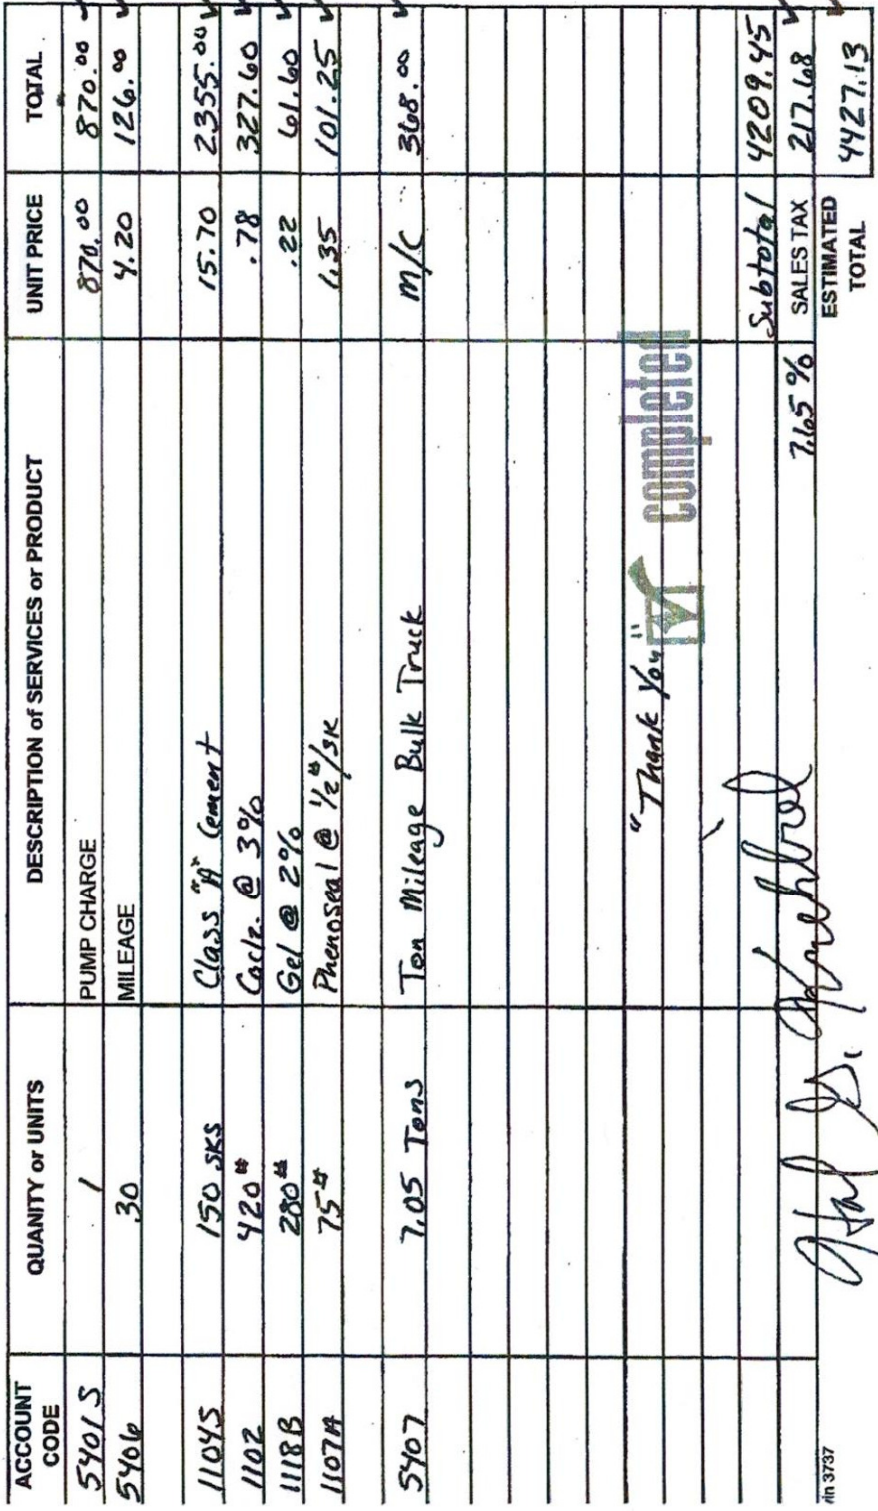 ACCOUNT CODE QUANITY or UNITS DESCRIPTION of SERVICES or PRODUCT UNIT PRICE TOTAL
5401S 1 PUMP CHARGE 870.00 870.00
5406 30 MILEAGE 4.20 126.00
1104S 150 SKS Class "A" Cement 15.70 2355.00
1102 420# Caclz. @ 3% .78 327.60
1118B 280# Gel @ 2% .22 61.60
1107A 75# Phenoseal @ 1/2#/SK 1.35 101.25
5407 7.05 Tons Ton Mileage Bulk Truck m/c 368.00
"Thank You"
completed
Subtotal 4209.45
7.65% SALES TAX 217.68
ESTIMATED TOTAL 4427.13
in 3737